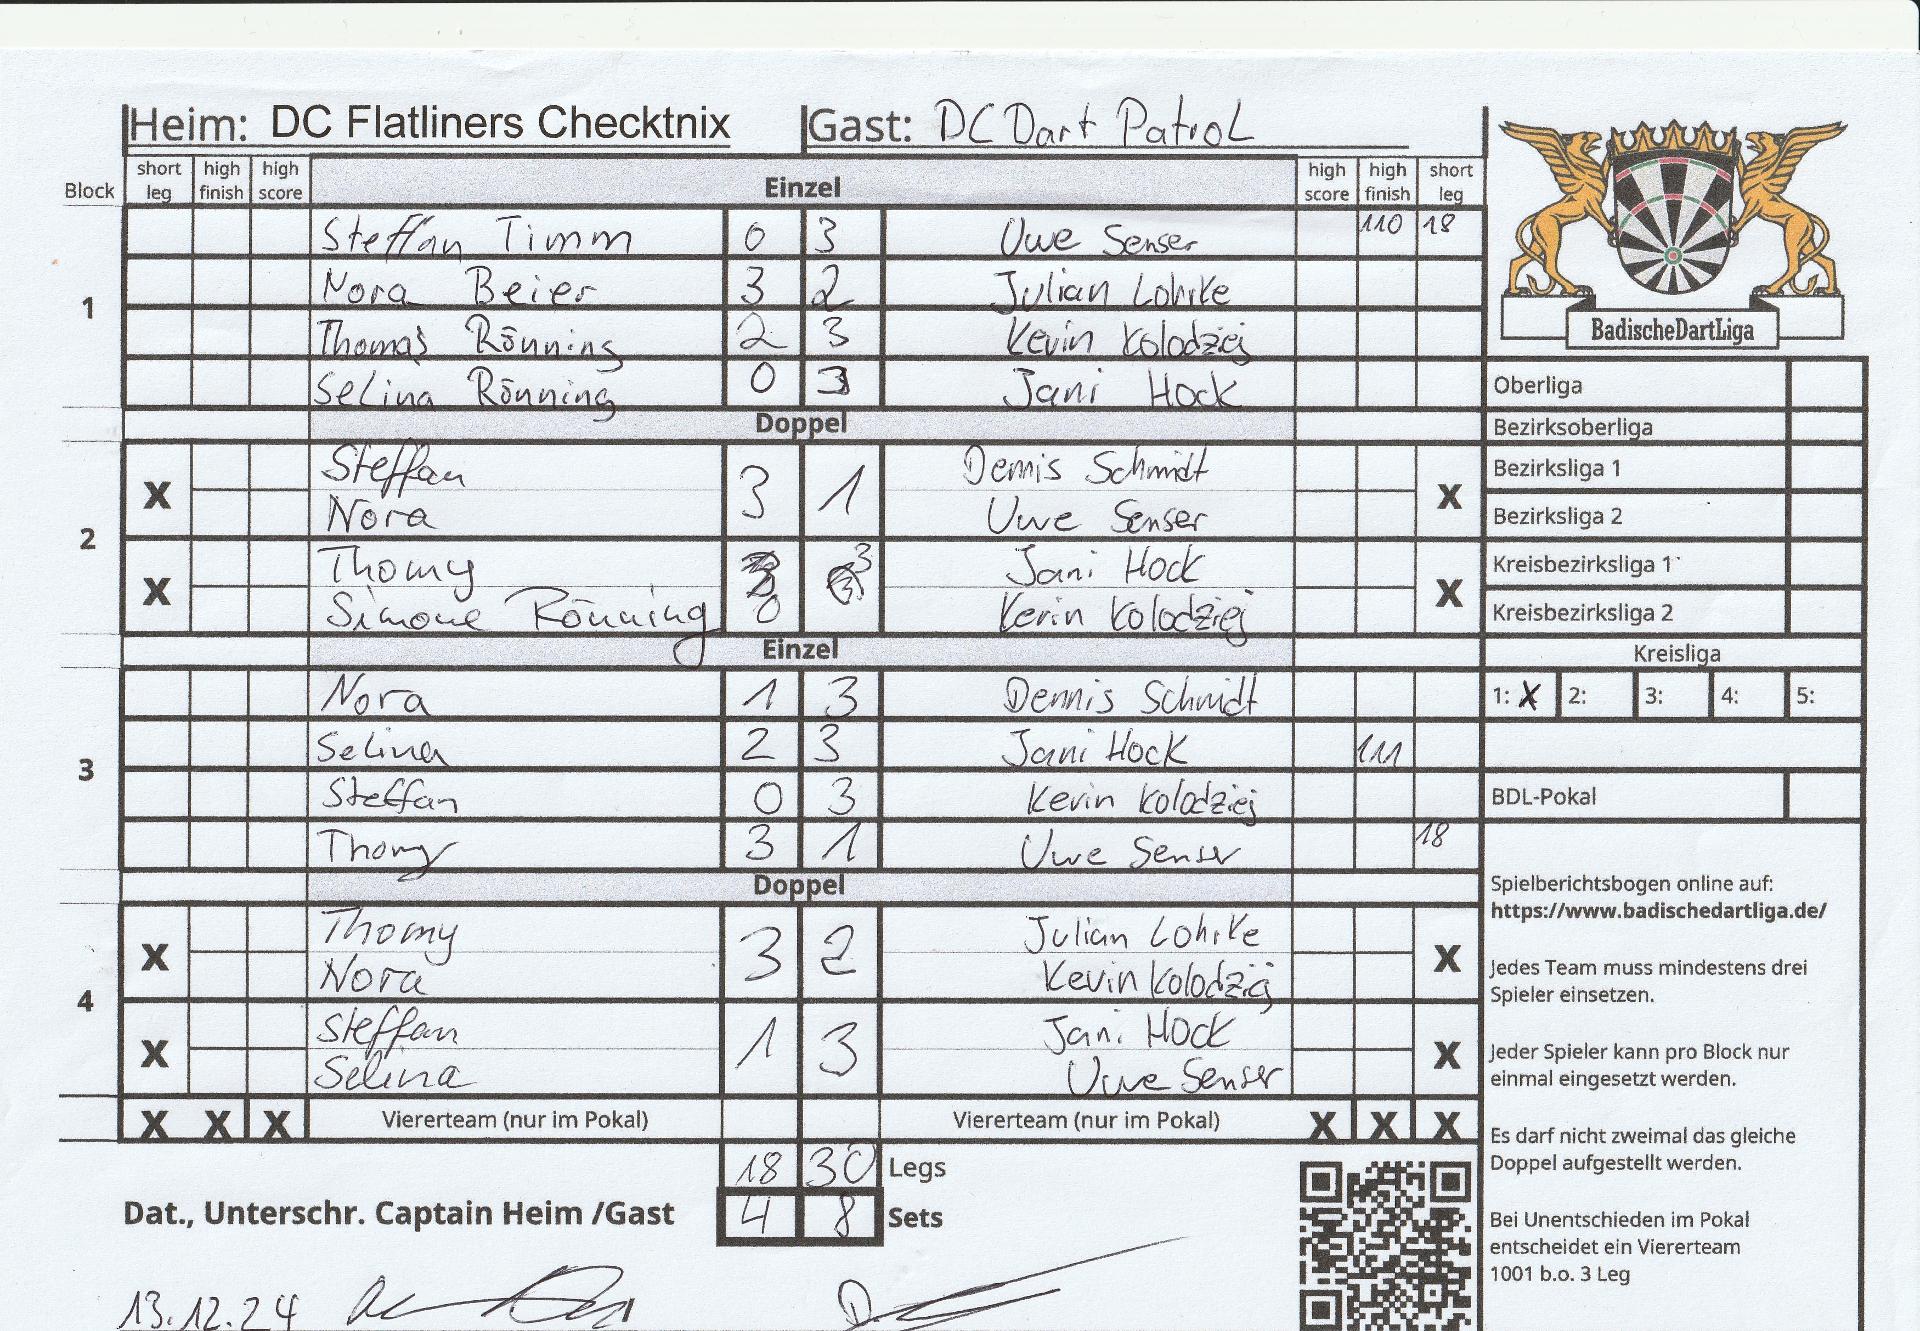 Heim: DC Flatliners Checktnix Gast: DC Dart Patrol
Block short leg high finish high score Einzel high score high finish short leg
Steffan Timm 0 3 Uwe Senser 110 18
1 Nora Beier 3 2 Julian Lohrke
Thomas Rönning 2 3 Kevin Kolodziej
Selina Rönning 0 3 Jani Hock
Doppel
Steffan Dennis Schmidt
X 3 1 X
Nora Uwe Senser
2
Thomy Jani Hock
X 0 3 X
Simone Rönning Kevin Kolodziej
Einzel
Nora 1 3 Dennis Schmidt
3 Selina 2 3 Jani Hock 111
Steffan 0 3 Kevin Kolodziej
Thomy 3 1 Uwe Senser 18
Doppel
Thomy Julian Lohrke
X 3 2 X
Nora Kevin Kolodziej
4
Steffan Jani Hock
X 1 3 X
Selina Uwe Senser
X X X Viererteam (nur im Pokal) Viererteam (nur im Pokal) X X X
18 30 Legs
Dat., Unterschr. Captain Heim /Gast 4 8 Sets
13.12.24
BadischeDartLiga
Oberliga
Bezirksoberliga
Bezirksliga 1
Bezirksliga 2
Kreisbezirksliga 1
Kreisbezirksliga 2
Kreisliga
1: X 2: 3: 4: 5:
BDL-Pokal
Spielberichtsbogen online auf:
https://www.badischedartliga.de/
Jedes Team muss mindestens drei
Spieler einsetzen.
Jeder Spieler kann pro Block nur
einmal eingesetzt werden.
Es darf nicht zweimal das gleiche
Doppel aufgestellt werden.
Bei Unentschieden im Pokal
entscheidet ein Viererteam
1001 b.o. 3 Leg